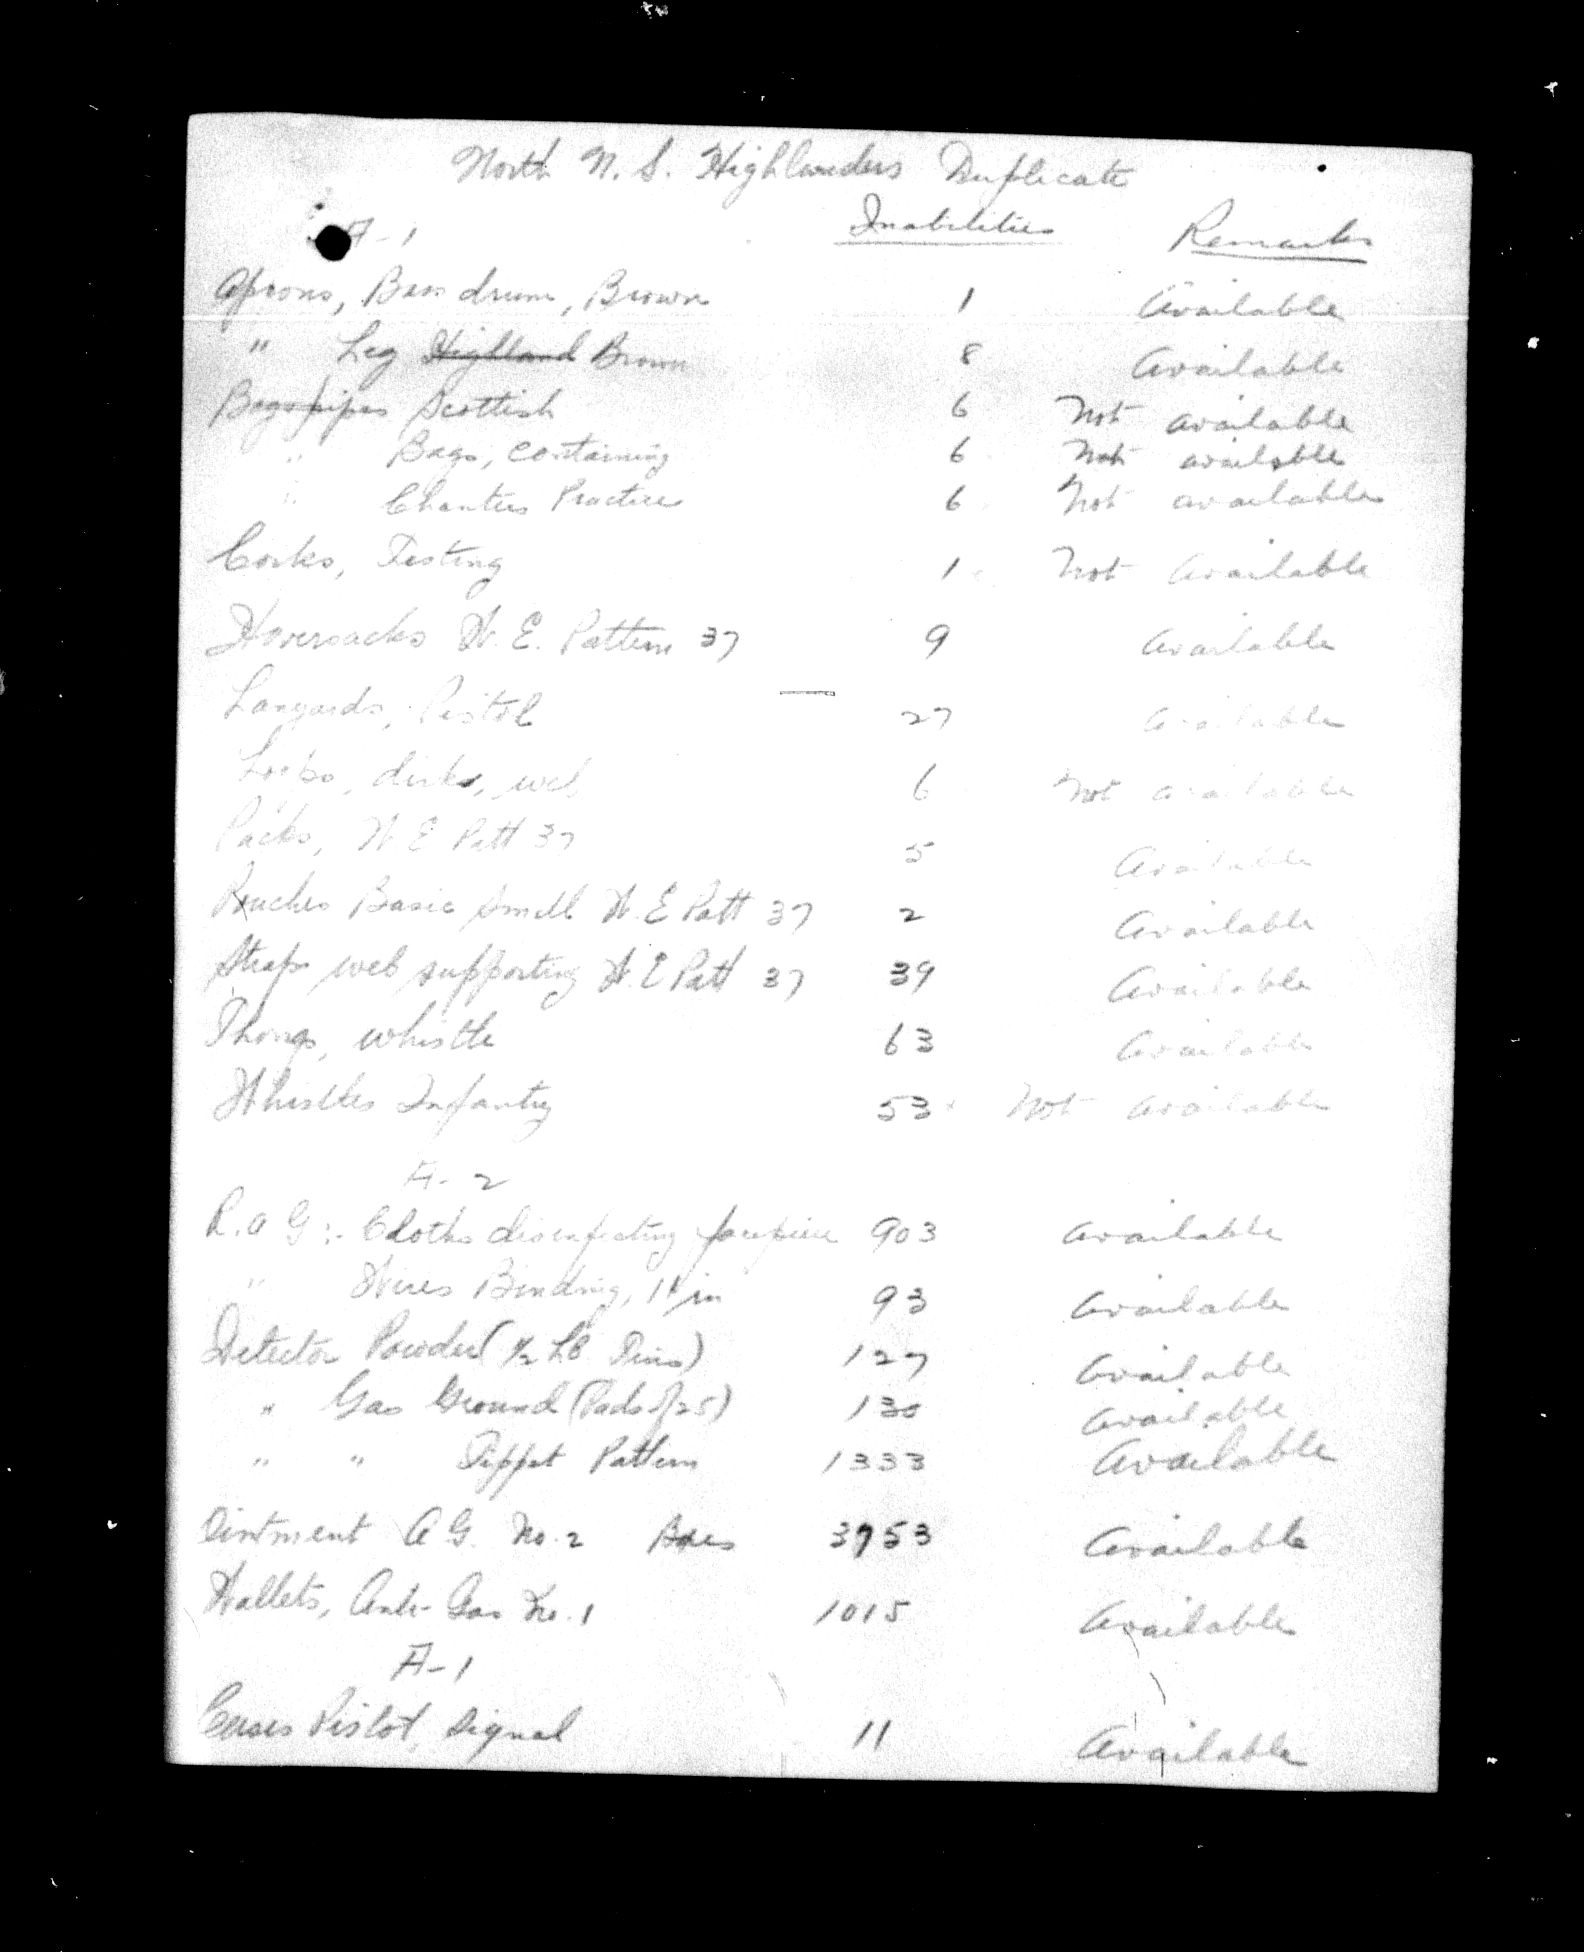 North N. S. Highlanders Duplicate
A-1 Inabilities Remarks
Aprons, Bass drum, Brown 1 Available
" Leg Highland Brown 8 Available
Bagpipes Scottish 6 Not available
" Bags, containing 6 Not available
" Chanters Practice 6 Not available
Corks, Testing 1 Not Available
Haversacks W. E. Pattern 37 9 Available
Lanyards, Pistol 27 Available
Loops, disks, web 6 Not available
Packs, W. E Patt 37 5 Available
Pouches Basic small W. E Patt 37 2 Available
Straps web supporting W. E Patt 37 39 Available
Thongs, whistle 63 Available
Whistles Infantry 53 Not available
A-2
R.A G:- Cloths disinfecting facepiece 903 Available
" Wires Binding, in 93 Available
Detector Powder (1/2 LB Tins) 127 Available
" Gas Ground (Pads of 25) 130 Available
" " Tippet Pattern 1333 Available
Ointment A G. No. 2 3753 Available
Wallets, Anti-Gas No. 1 1015 Available
A-1
Cases Pistol, Signal 11 Available